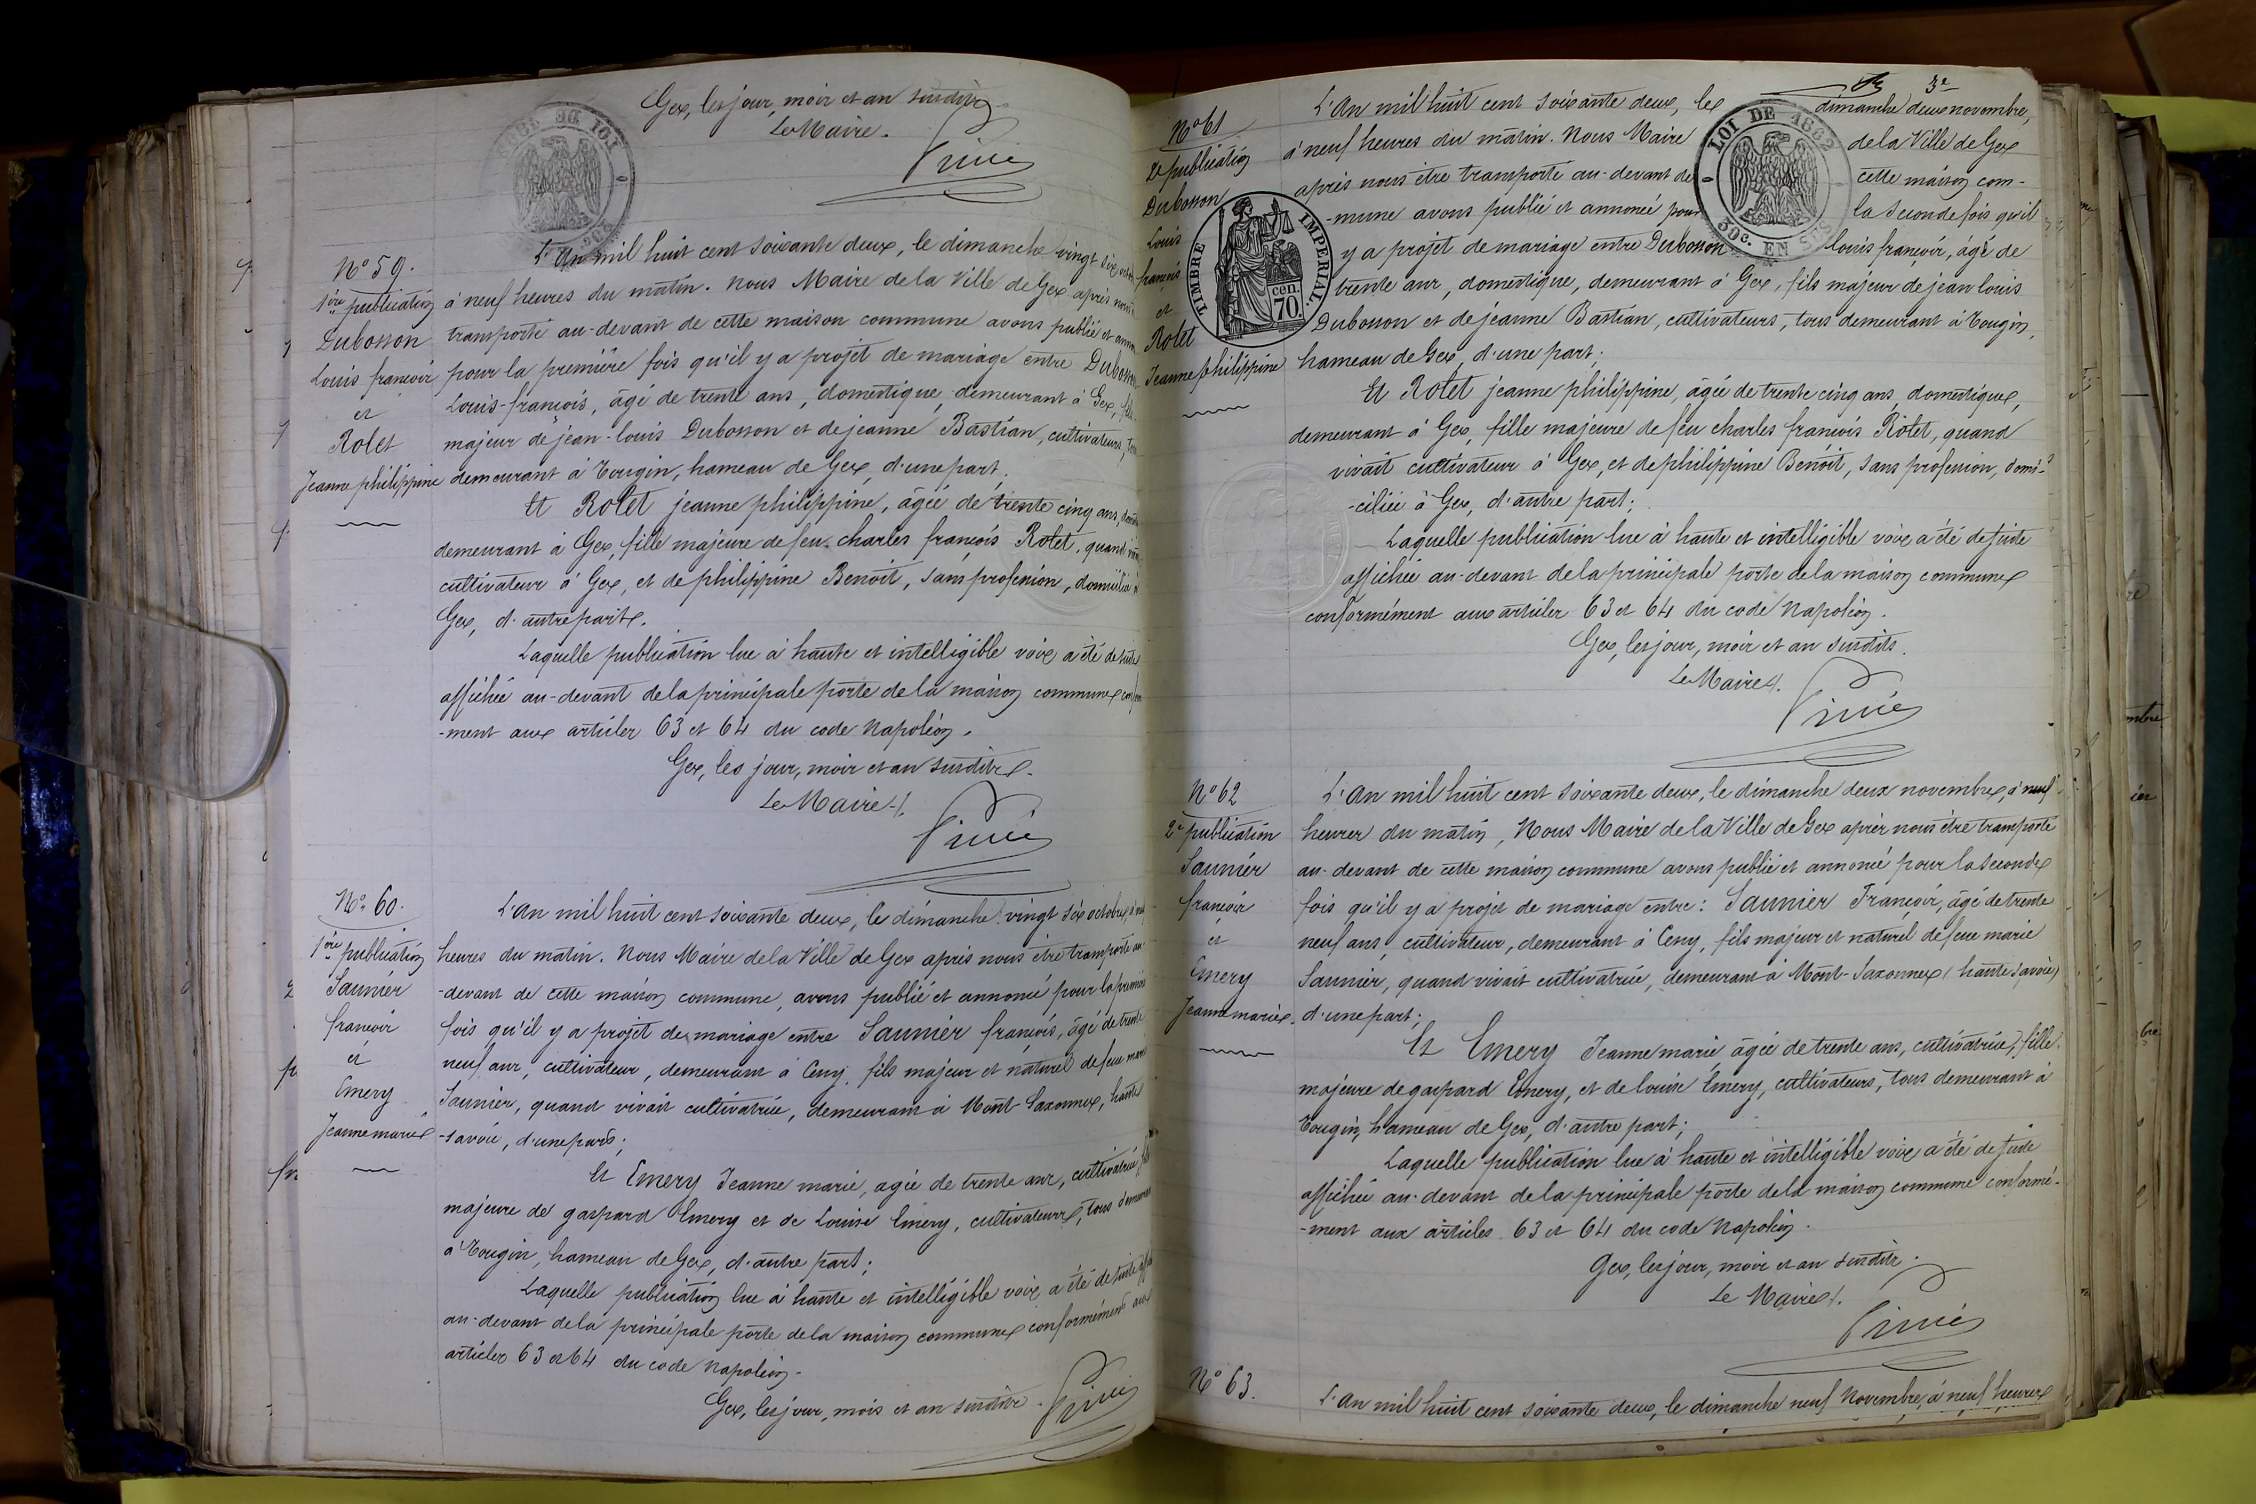 Gex, les jour, mois et an susdits.
Le Maire.
N° 59.
1ère publication
Dubosson
Louis françois
et
Rolet
Jeanne philippine
L'An mil huit cent soixante deux, le dimanche vingt six
à neuf heures du matin. Nous Maire de la Ville de Gex après nous
transporté au-devant de cette maison commune avons publié et
pour la première fois qu'il y a projet de mariage entre Dubosson
Louis-françois, âgé de trente ans, domestique, demeurant à Gex, fils
majeur de jean-louis Dubosson et de jeanne Bastian, cultivateurs,
demeurant à Tougin, hameau de Gex, d'une part.
Et Rolet jeanne philippine, âgée de trente cinq ans,
demeurant à Gex, fille majeure de feu charles françois Rolet, quand
cultivateur à Gex, et de philippine Benoit, sans profession, domiciliée à
Gex, d'autre part.
Laquelle publication lue à haute et intelligible voix a été de suite
affichée au-devant de la principale porte de la maison commune
-ment aux articles 63 et 64 du code Napoléon.
Gex, les jour, mois et an susdits.
Le Maire.
N° 60.
1ère publication
Saunier
françois
et
Emery
Jeanne marie
L'An mil huit cent soixante deux, le dimanche vingt six octobre,
heures du matin. Nous Maire de la Ville de Gex après nous être transporté au-
-devant de cette maison commune, avons publié et annoncé pour la première
fois qu'il y a projet de mariage entre Saunier françois, âgé de trente
neuf ans, cultivateur, demeurant à Ceny, fils majeur et naturel de feue marie
Saunier, quand vivait cultivatrice, demeurant à Mont-Saxonnex, haute
-savoie, d'une part;
Et Emery Jeanne marie, agée de trente ans, cultivatrice,
majeure de gaspard Emery et de Louise Emery, cultivateurs, tous
à Tougin, hameau de Gex, d'autre part;
Laquelle publication lue à haute et intelligible voix a été de suite
au-devant de la principale porte de la maison commune conformément aux
articles 63 et 64 du code Napoléon.
Gex, les jour, mois et an susdits.
N° 61
2e publication
Dubosson
Louis
françois
et
Rolet
Jeanne philippine
TIMBRE IMPERIAL.
70. cen.
LOI DE 1862
L'An mil huit cent soixante deux, les dimanche deux novembre,
à neuf heures du matin. Nous Maire de la Ville de Gex
après nous être transporté au-devant de cette maison com-
-mune avons publié et annoncé pour la seconde fois qu'il
y a projet de mariage entre Dubosson louis françois, âgé de
trente ans, domestique, demeurant à Gex, fils majeur de jean louis
Dubosson et de jeanne Bastian, cultivateurs, tous demeurant à Tougin,
hameau de Gex, d'une part;
Et Rolet jeanne philippine, âgée de trente cinq ans, domestique,
demeurant à Gex, fille majeure de feu charles françois Rolet, quand
vivait cultivateur à Gex, et de philippine Benoit, sans profession, domi-
-ciliée à Gex, d'autre part;
Laquelle publication lue à haute et intelligible voix a été de suite
affichée au-devant de la principale porte de la maison commune
conformément aux articles 63 et 64 du code Napoléon.
Gex, les jour, mois et an susdits.
Le Maire.
N° 62
2e publication
Saunier
françois
et
Emery
Jeanne marie.
L'An mil huit cent soixante deux, le dimanche deux novembre, à neuf
heures du matin, Nous Maire de la Ville de Gex après nous être transporté
au-devant de cette maison commune avons publié et annoncé pour la seconde
fois qu'il y a projet de mariage entre: Saunier François, âgé de trente
neuf ans, cultivateur, demeurant à Ceny, fils majeur et naturel de feue marie
Saunier, quand vivait cultivatrice, demeurant à Mont-Saxonnex (haute savoie)
d'une part;
Et Emery Jeanne marie, agée de trente ans, cultivatrice, fille
majeure de gaspard Emery, et de louise Emery, cultivateurs, tous demeurant à
Tougin, hameau de Gex, d'autre part;
Laquelle publication lue à haute et intelligible voix a été de suite
affichée au-devant de la principale porte de la maison commune conformé-
-ment aux articles 63 et 64 du code Napoléon.
Gex, les jour, mois et an susdits.
Le Maire.
N° 63.
L'An mil huit cent soixante deux, le dimanche neuf Novembre, à neuf heures